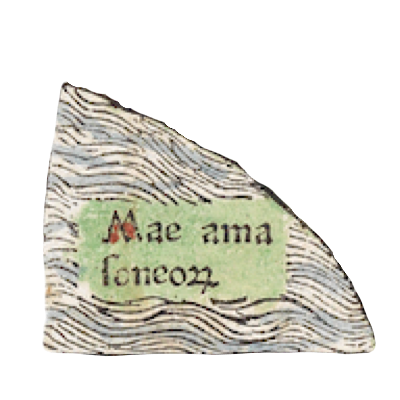 Mae ama
ſoneoꝝ